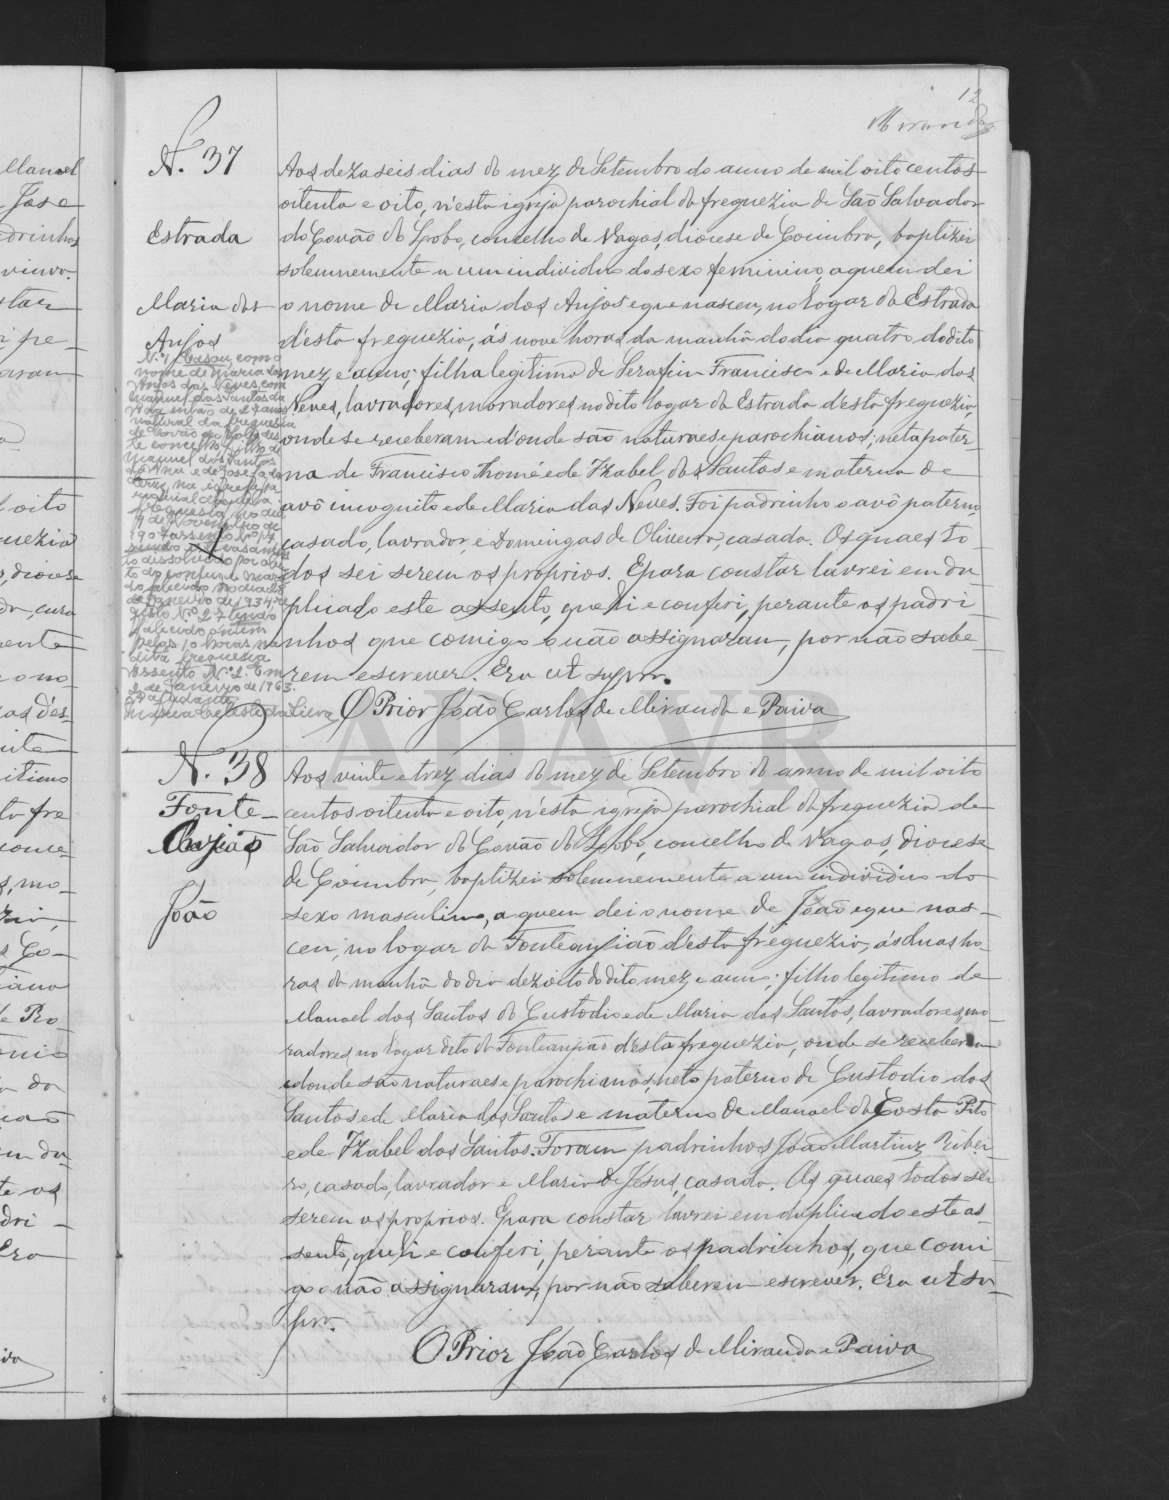 12
Miranda
N. 37
Estrada
Maria dos
Anjos
Aos dezaseis dias do mez de Setembro do anno de mil oito centos
oitenta e oito, n'esta igreja parochial da freguezia de São Salvador
do Covão do Lobo, concelho de Vagos, diocese de Coimbra, baptizei
solemnemente a um individuo do sexo feminino, a quem dei
o nome de Maria dos Anjos e que nasceu, no logar da Estrada
d'esta freguezia, ás nove horas da manhã do dia quatro do dito
mez e anno; filha legitima de Serafim Francisco e de Maria das
Neves, lavradores, moradores no dito logar da Estrada d'esta freguezia,
onde se receberam e d'onde são naturaes e parochianos; neta pater-
na de Francisco Thomé e de Izabel dos Santos e materna de
avô incognito e de Maria das Neves. Foi padrinho o avô paterno
casado, lavrador, e Domingas de Oliveira, casada. Os quaes to-
dos sei serem os proprios. E para constar lavrei em du-
plicado este assento, que li e conferi, perante os padri-
nhos que comigo o não assignaram, por não sabe-
rem escrever. Era ut supra.
O Prior João Carlos de Miranda e Paiva
N.º 1 Casou com o
nome de Maria dos
Anjos das Neves com
Manuel dos Santos da
de 27 anos
natural da freguesia
de Covão do Lobo des-
te concelho, filho de
Manuel dos Santos
e de Josefa da
Cruz, na igreja pa-
roquial
freguesia, no dia
9 de Novembro de
1907 assento N.º 17
sendo o casamen-
to dissolvido por óbi-
to do conjuge mari-
do falecido no dia
de Janeiro de 1934, re-
gisto N.º 27 tendo
falecido ontem
pelas 10 horas na
dita freguesia
Assento N.º 2. Em
2 de Janeiro de 1963.
O Ajudante
Maria Celeste da Silva
N. 38
Fonte-
Anjião
João
Aos vinte e trez dias do mez de Setembro do anno de mil oito
centos oitenta e oito, n'esta igreja parochial da freguezia de
São Salvador do Covão do Lobo, concelho de Vagos, diocese
de Coimbra, baptizei solemnemente a um individuo do
sexo masculino, a quem dei o nome de João e que nas-
ceu, no logar da Fonteanjião d'esta freguezia, ás duas ho-
ras da manhã do dia dezoito do dito mez e anno; filho legitimo de
Manoel dos Santos do Custodio e de Maria dos Santos, lavradores, mo-
radores no logar dito da Fonteanjião d'esta freguezia, onde se receberam
e d'onde são naturaes e parochianos, neto paterno de Custodio dos
Santos e de Maria dos Santos e materno de Manoel da Costa Pito
e de Izabel dos Santos. Foram padrinhos João Martins Ribei-
ro, casado, lavrador e Maria de Jesus, casada. Os quaes todos sei
serem os proprios. E para constar lavrei em duplicado este as-
sento, que li e conferi, perante os padrinhos, que comi-
go o não assignaram, por não saberem escrever. Era ut su-
pra.
O Prior João Carlos de Miranda e Paiva
ADAVR